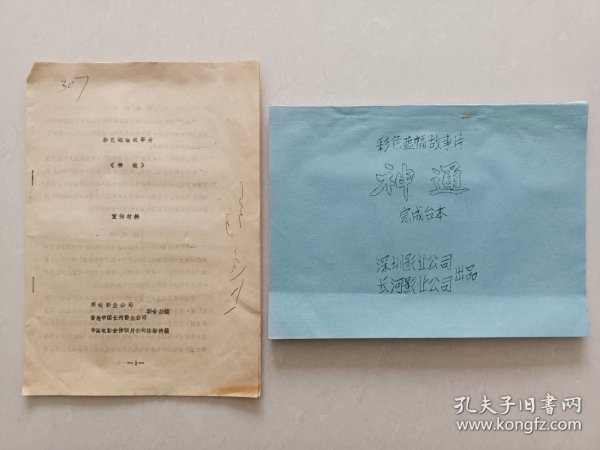 307
彩色遮幅故事片
《神通》
宣传材料
深圳影业公司
香港中国长河影业公司
联合拍摄
中国电影合作制片公司协助拍摄
—1—
彩色遮幅故事片
神通
完成台本
深圳影业公司
长河影业公司
出品
孔夫子旧书网
www.kongfz.com